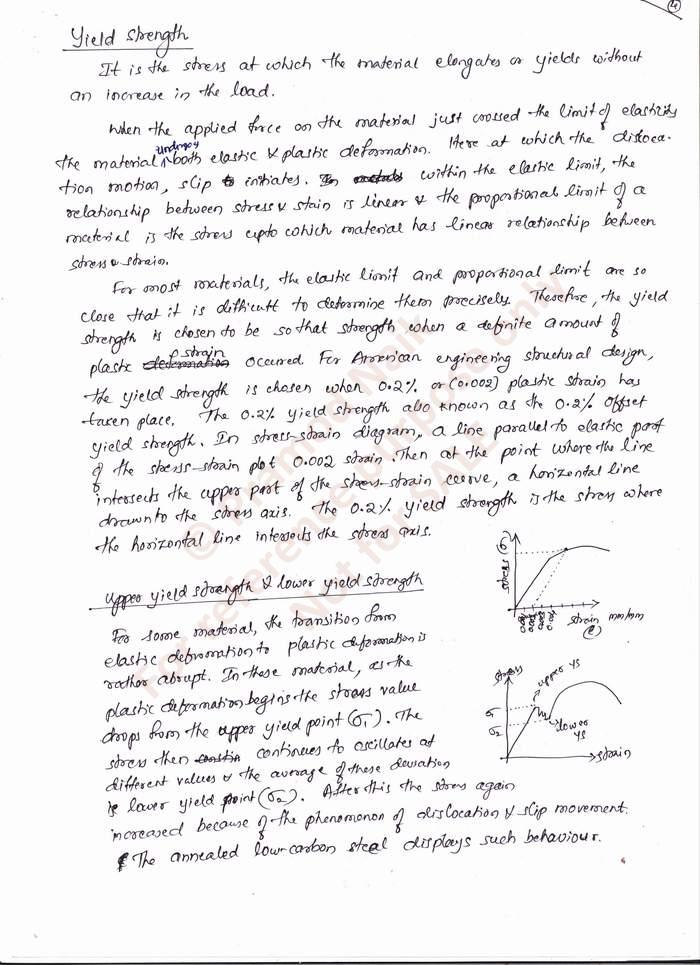 4
Yield Strength
It is the stress at which the material elongates or yields without
an increase in the load.
When the applied force on the material just crossed the limit of elasticity
the material undergoes both elastic & plastic deformation. Here at which the disloca-
tion motion, slip initiates. within the elastic limit, the
relationship between stress & stain is linear & the proportional limit of a
material is the stress upto which material has linear relationship between
stress & strain.
For most materials, the elastic limit and proportional limit are so
close that it is difficult to determine them precisely. Therefore, the yield
strength is chosen to be so that strength when a definite amount of
plastic strain occured. For American engineering structural design,
the yield strength is chosen when 0.2% or (0.002) plastic strain has
taken place. The 0.2% yield strength also known as the 0.2% offset
yield strength. In stress-strain diagram, a line parallel to elastic part
of the stress-strain plot 0.002 strain. Then at the point where the line
intersects the upper part of the stress-strain curve, a horizental line
drawn to the stress axis. The 0.2% yield strength is the stress where
the horizontal line intersects the stress axis.
stress (σ)
strain mm/mm
(e)
Upper yield strength & lower yield strength
For some material, the transition from
elastic defromation to plastic deformation is
rather abrupt. In these material, as the
plastic deformation begins the stress value
drops from the upper yield point (σ1). The
stress then continues to oscillates at
different values & the average of these deviation
is lower yield point (σ2). After this the stress again
increased because of the phenomonon of dislocation & slip movement.
The annealed low-carbon steel displays such behaviour.
stress
upper ys
σ1
σ2
lower
ys
strain
© Pramod Naik
For reference purpose only
Not for SALE